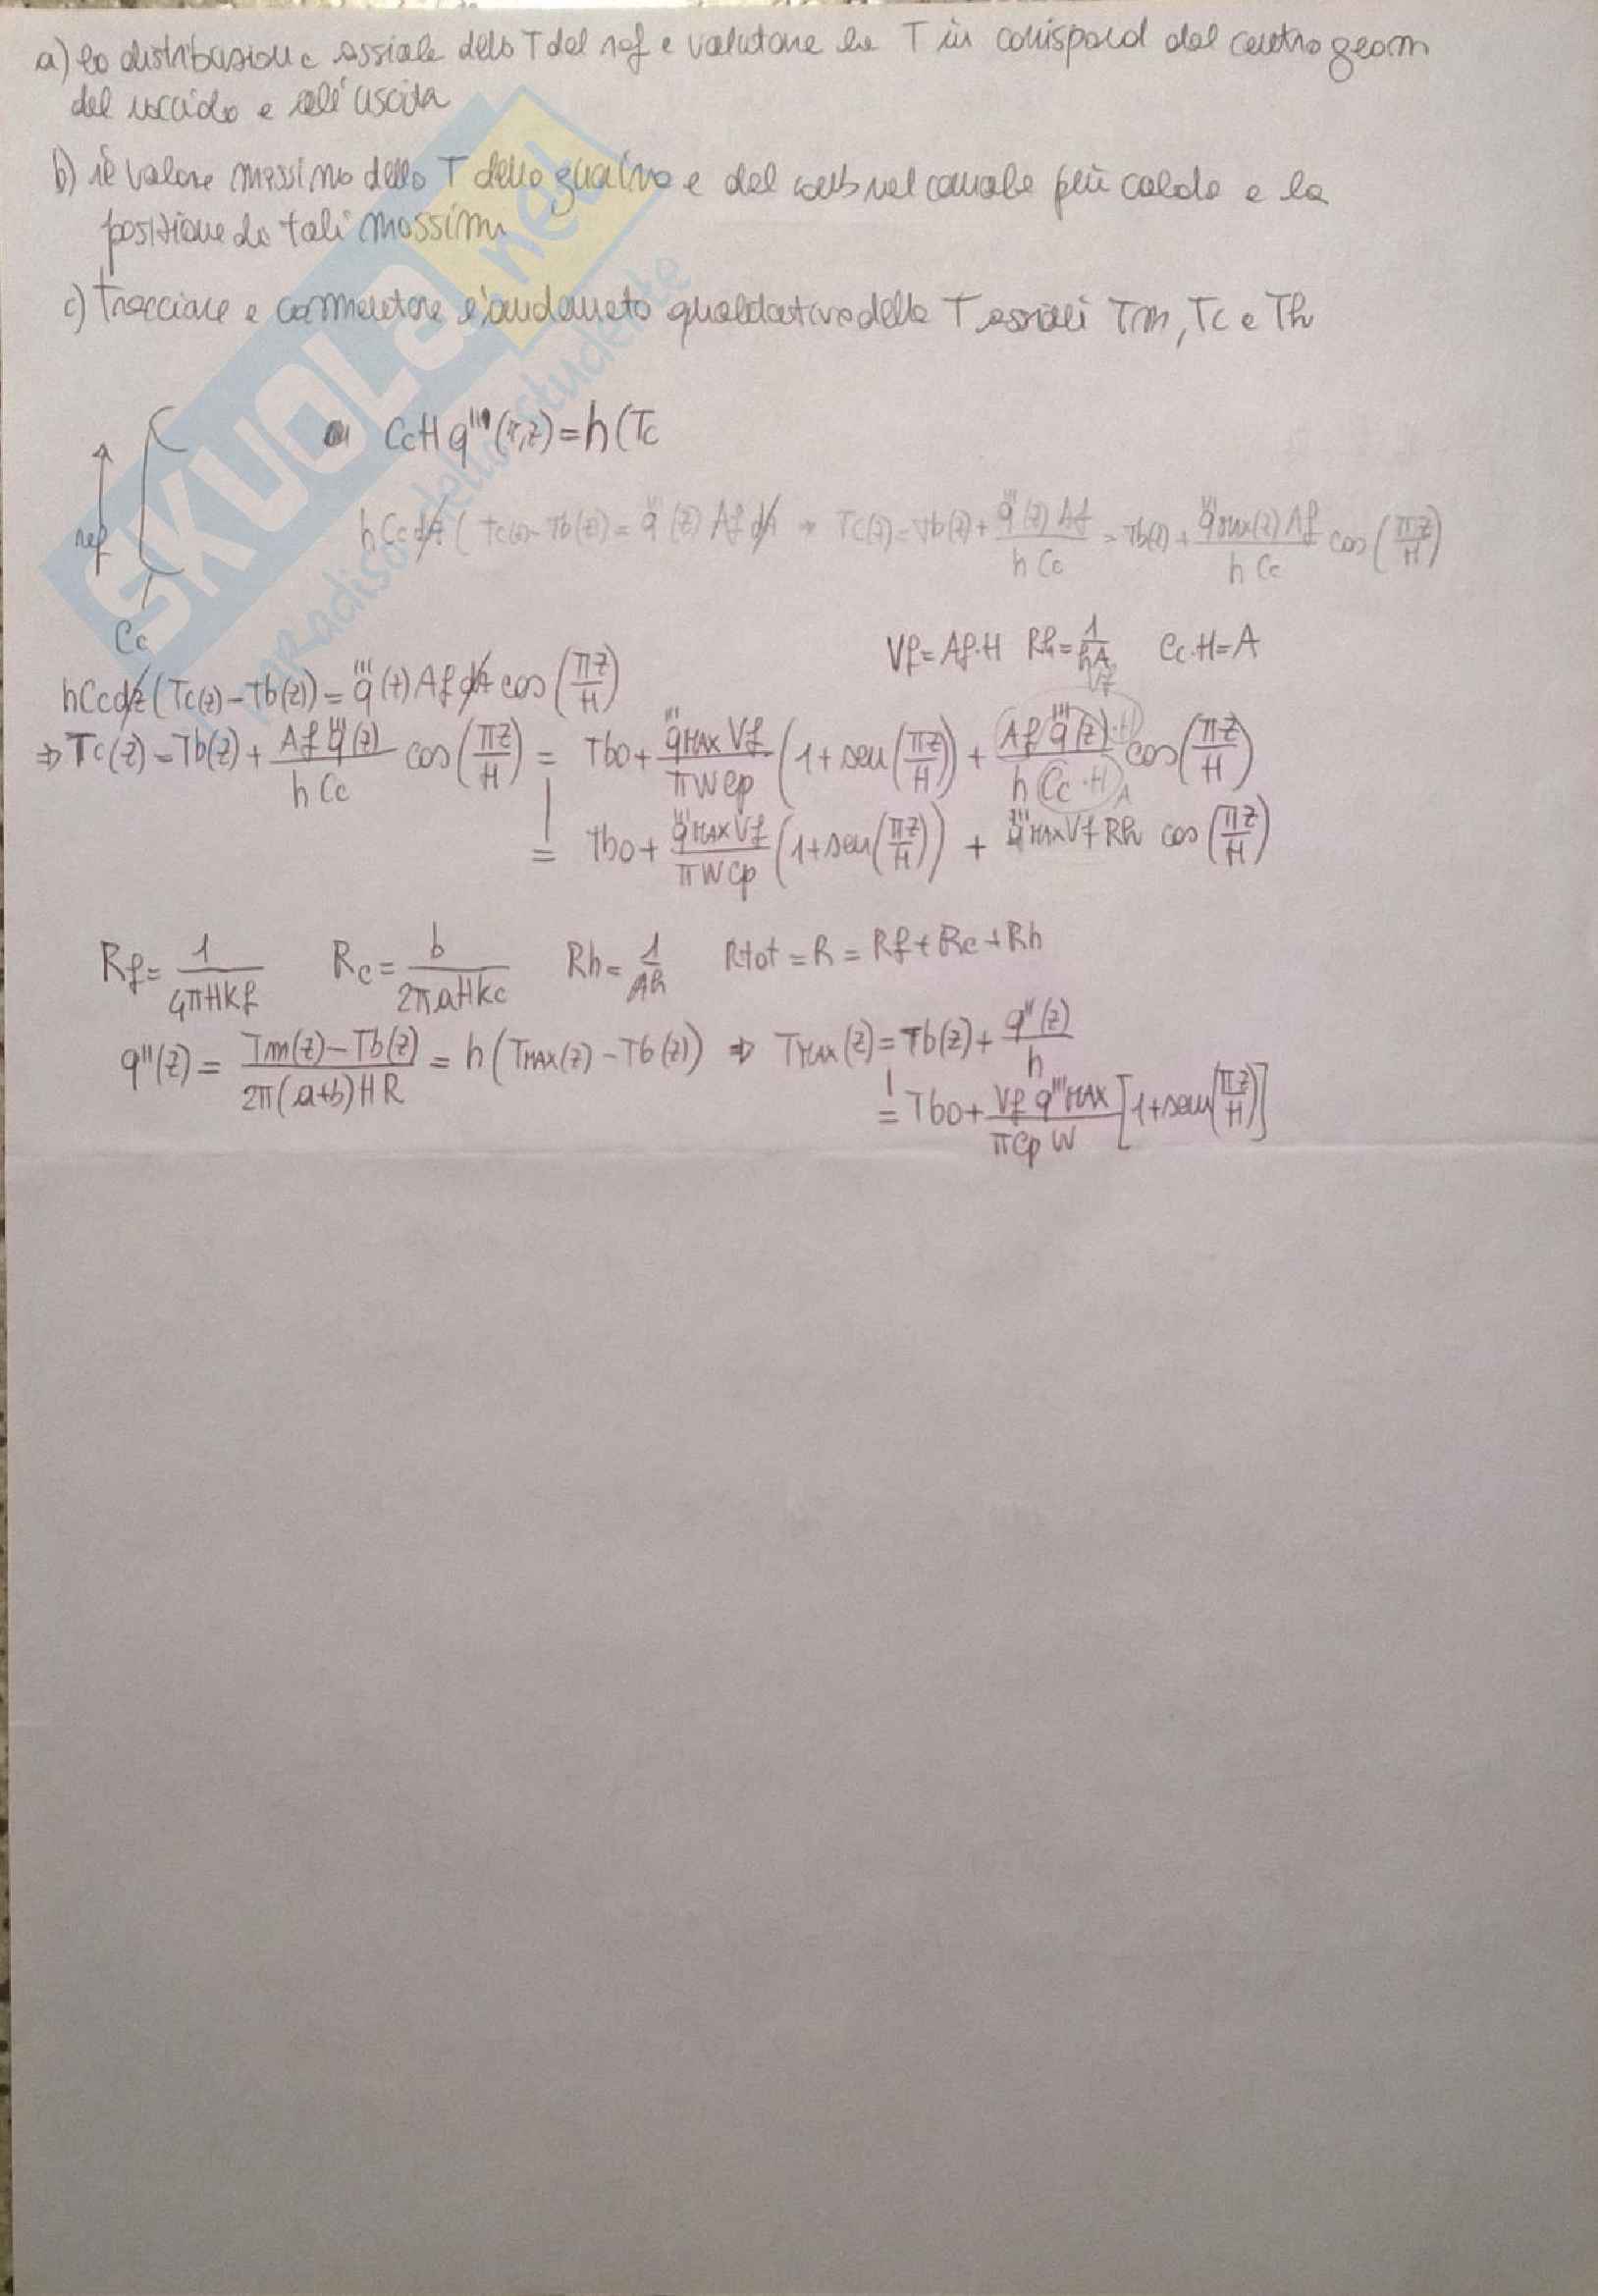 a) la distribuzione assiale della T del ref e valutare la T in corrispond del centro geom
del nocciolo e all'uscita
b) il valore massimo della T della guaina e del comb nel canale più caldo e la
posizione di tali massimi
c) tracciare e commentare l'andamento qualitativo delle T assiali Tm, Tc e Th
Cc H q'''(r,z) = h(Tc
ref
hCc dz (Tc(z)-Tb(z) = q'''(z) Af dz ⇒ Tc(z) = Tb(z) + q'''(z) Af / h Cc = Tb(z) + q'''max(z) Af / h Cc cos(πz/H)
Cc
Vf = Af·H Rh = 1/hA Cc·H = A
Vf
hCc dz (Tc(z) - Tb(z)) = q'''(z) Af dz cos(πz/H)
⇒ Tc(z) = Tb(z) + Af q'''(z) / h Cc cos(πz/H) = Tbo + q'''MAX Vf / πWcp (1 + sen(πz/H) + Af q'''(z)·H / h Cc·H cos(πz/H)
A
= Tbo + q'''MAX Vf / πWcp (1 + sen(πz/H)) + q'''MAX Vf Rh cos(πz/H)
Rf = 1 / 4πHKf Rc = b / 2πaHKc Rh = 1 / Ah Rtot = R = Rf + Rc + Rh
q''(z) = Tm(z) - Tb(z) / 2π(a+b)HR = h(TMAX(z) - Tb(z)) ⇒ TMAX(z) = Tb(z) + q''(z) / h
= Tbo + Vf q'''MAX / πcpW [1 + sen(πz/H)]
SKUOLA.net
il paradiso dello studente